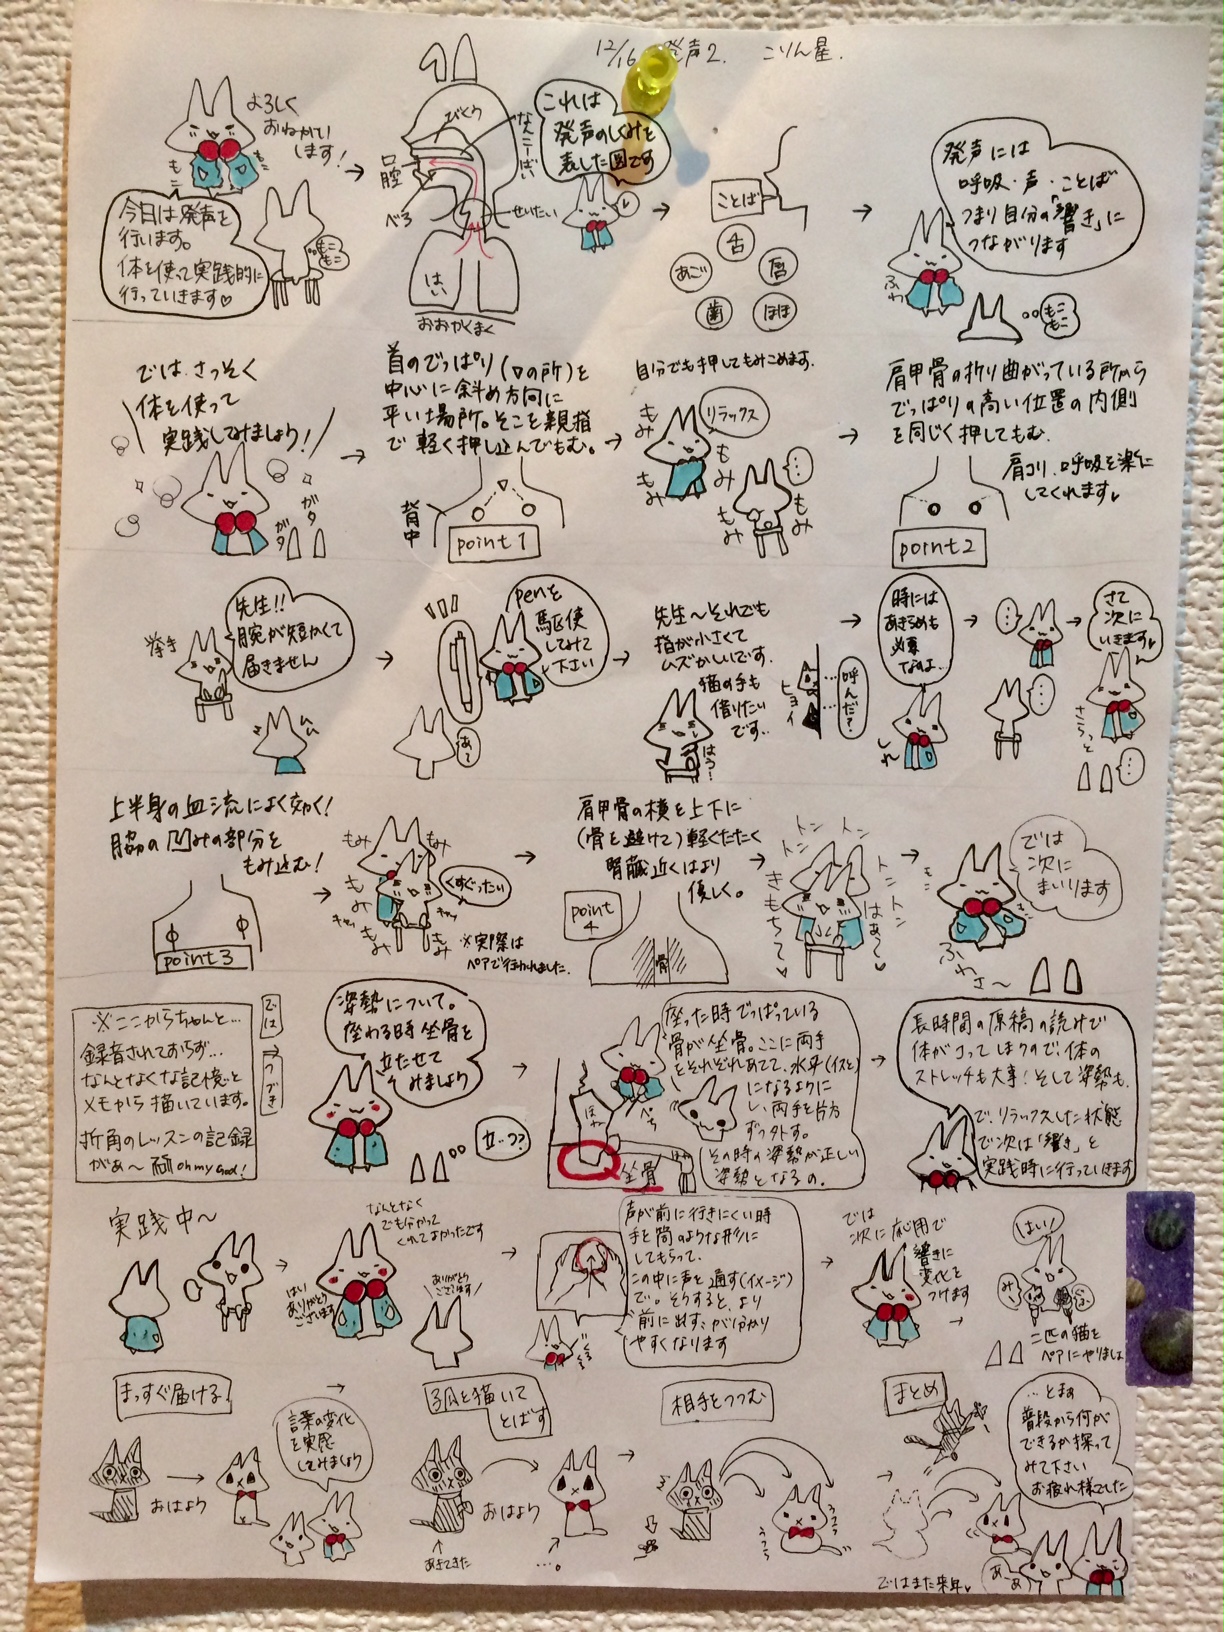 12/16 発声2. こりん星.
よろしく
おねがい
します!
もこ
もこ
今日は発声を
行います。
体を使って実践的に
行っていきます♡
もこ
もこ
口腔
べろ
せいたい
はい
おおかくまく
これは
発声のしくみを
表した図です
ことば
舌
あご
唇
歯
ほほ
発声には
呼吸・声・ことば
つまり自分の「響き」に
つながります
ふわ
もこ
もこ
では、さっそく
体を使って
実践してみましょう!
ガタ
ガタ
首のでっぱり(口の所)を
中心に斜め方向に
平い場所。そこを親指
で軽く押し込んでもむ。
背中
point1
自分でも押してもみこめます.
リラックス
もみ
もみ
もみ
もみ
もみ
…
肩甲骨の折り曲がっている所から
でっぱりの高い位置の内側
を同じく押してもむ.
肩コリ、呼吸を楽に
してくれます♡
point2
挙手
先生!!
腕が短かくて
届きません
penを
駆使
してみて
下さい
あ〜
先生〜それでも
指が小さくて
ムズかしいです.
猫の手も
借りたい
です..
はう…
ヒョイ
…呼んだ?
時には
あきらめも
必要
なのよ..
…
…
さて
次に
いきます♡
さらっと
…
上半身の血流によく効く!
脇の凹みの部分を
もみ込む!
point3
もみ
もみ
もみ
もみ
もみ
くすぐったい
キャッ
キャッ
※実際は
ペアで行われました.
肩甲骨の横を上下に
(骨を避けて)軽くたたく
腎臓近くはより
優しく。
point
4
骨
トン
トン
トン
トン
トン
きもち〜♡
はぁ〜♡
では
次に
まいります
ふわさ〜
※ここからちゃんと…
録音されておらず…
なんとなくな記憶と
メモから描いています。
折角のレッスンの記録
がぁ〜 oh my God!
では
→つづき
姿勢について。
座わる時坐骨を
立たせて
みましょう
立つ?
座った時でっぱっている
骨が坐骨。ここに両手
をそれぞれあてて、水平(イスと)
になるように
し、両手を片方
ずつ外す。
その時の姿勢が正しい
姿勢となるの.
坐骨
長時間の原稿の読みで
体がコってしまうので、体の
ストレッチも大事!そして姿勢も.
で、リラックスした状態
で次は「響き」と
実践時に行っていきます
実践中〜
なんとなく
でも分かって
くれてよかったです
はい
ありがとう
ございます
ありがとう
ございます!
声が前に行きにくい時
手を筒のような形に
してもらって、
この中に声を通す(イメージ)
で。そうすると、より
前に出す、が分かり
やすくなります
では
次に応用で
響きに
変化を
つけます
はい!
二匹の猫を
ペアにやりました
まっすぐ届ける!
おはよう
言葉の変化
を実感
してみましょう
弧を描いて
とばす
おはよう
あきてきた
…。
相手をつつむ
まとめ
…とまぁ
普段から何が
できるか探って
みて下さい
お疲れ様でした
ではまた来年♡